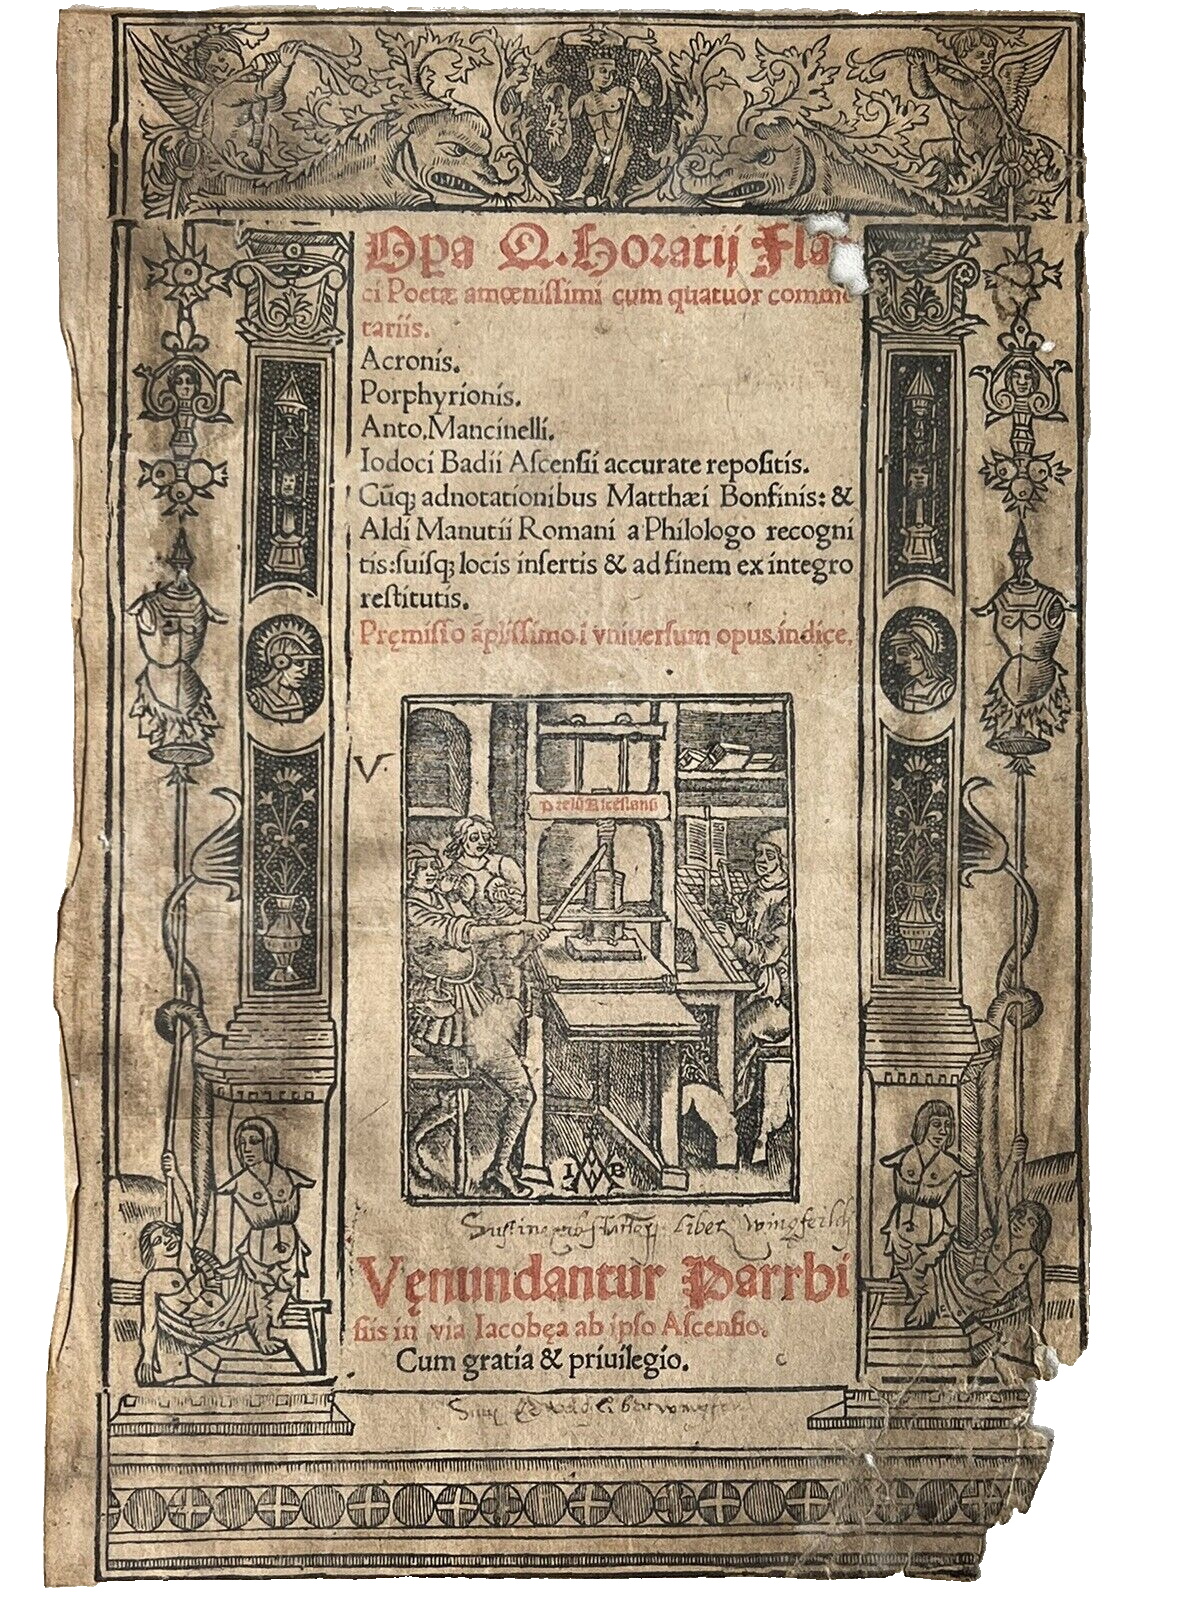 Opa Q. Horatij Fla-
ci Poetæ amœnissimi cum quatuor comme
tariis.
Acronis.
Porphyrionis.
Anto. Mancinelli.
Iodoci Badii Aſcenſii accurate repoſitis.
Cūq; adnotationibus Matthæi Bonfinis: &
Aldi Manutii Romani a Philologo recogni
tis: ſuiſq; locis inſertis & ad finem ex integro
reſtitutis.
Pręmiſſo āpliſſimo i vniuerſum opus indice.
V
Prelū Aſcēſianū
I B
liber wingfeild
Vęnundantur Parrhi
ſiis in via Iacobęa ab ipſo Aſcenſio.
Cum gratia & priuilegio.